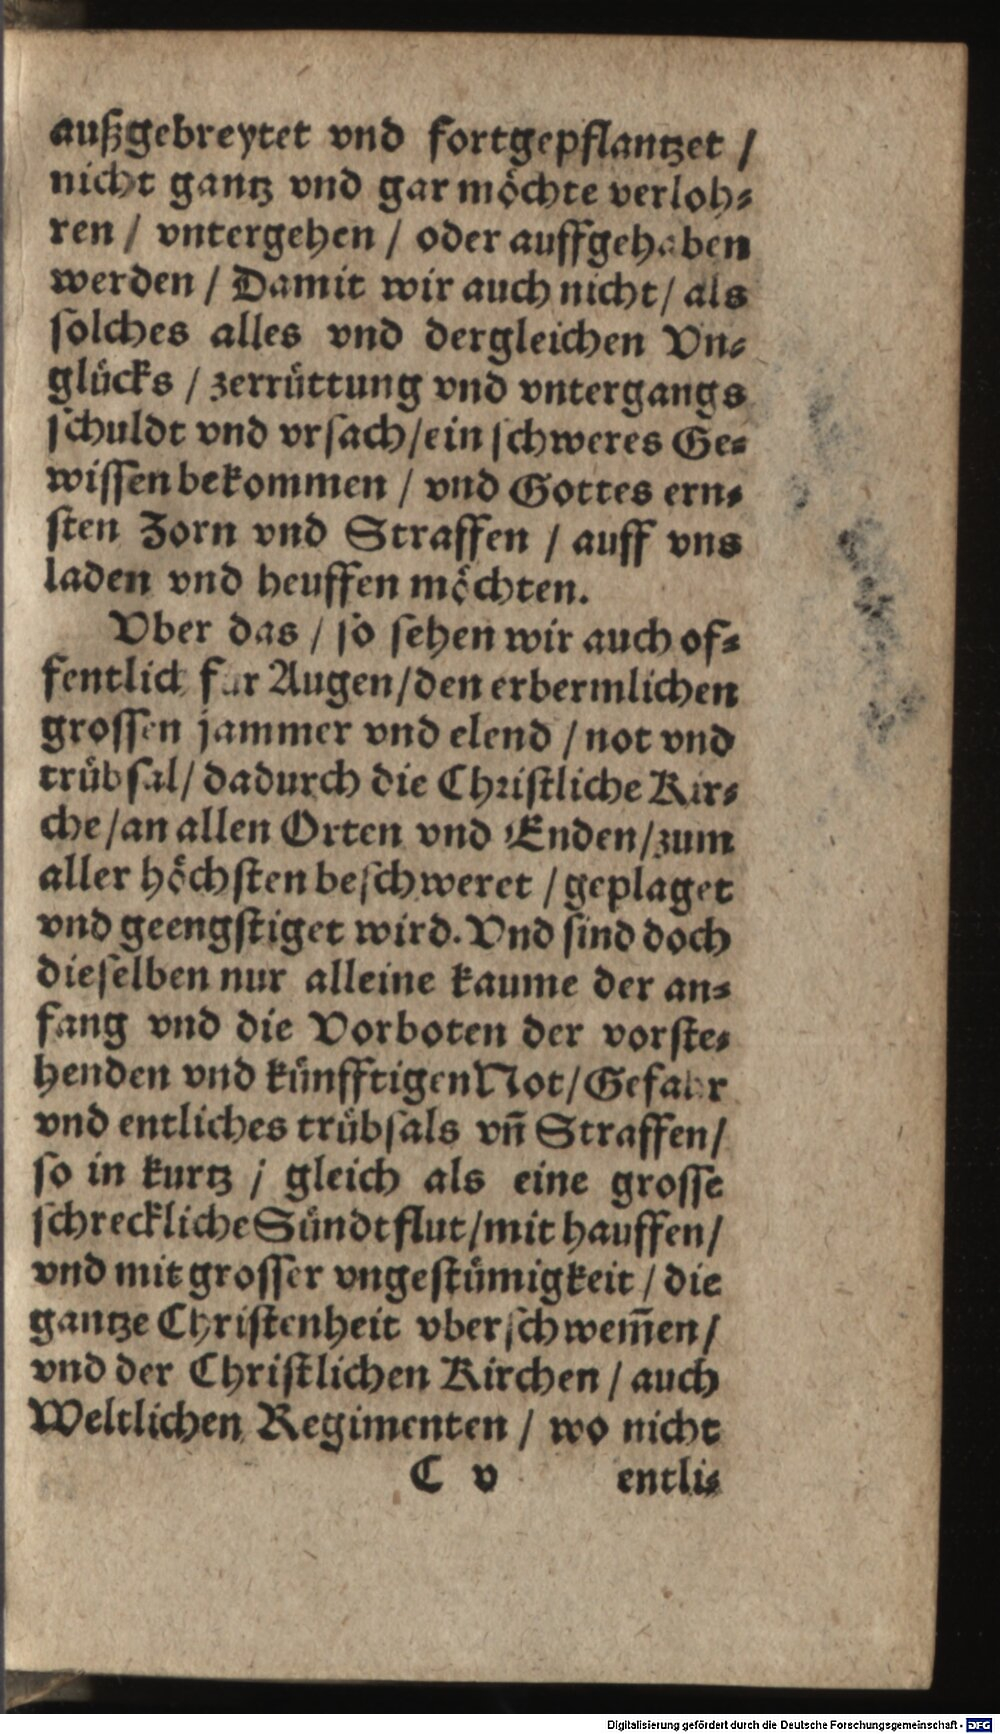 außgebreytet vnd fortgepflantzet /
nicht gantz vnd gar möchte verloh⸗
ren / vntergehen / oder auffgehaben
werden / Damit wir auch nicht / als
solches alles vnd dergleichen Vn⸗
glücks / zerrüttung vnd vntergangs
schuldt vnd vrsach / ein schweres Ge⸗
wissen bekommen / vnd Gottes ern⸗
sten Zorn vnd Straffen / auff vns
laden vnd heuffen möchten.
Vber das / so sehen wir auch of⸗
fentlich für Augen / den erbermlichen
grossen jammer vnd elend / not vnd
trübsal / dadurch die Christliche Kir⸗
che / an allen Orten vnd Enden / zum
aller höchsten beschweret / geplaget
vnd geengstiget wird. Vnd sind doch
dieselben nur alleine kaume der an⸗
fang vnd die Vorboten der vorste⸗
henden vnd künfftigen Not / Gefahr
vnd entliches trübsals vn̄ Straffen /
so in kurtz / gleich als eine grosse
schreckliche Sündtflut / mit hauffen /
vnd mit grosser vngestümigkeit / die
gantze Christenheit vberschwem̄en /
vnd der Christlichen Kirchen / auch
Weltlichen Regimenten / wo nicht
C v entli⸗
Digitalisierung gefördert durch die Deutsche Forschungsgemeinschaft - DFG